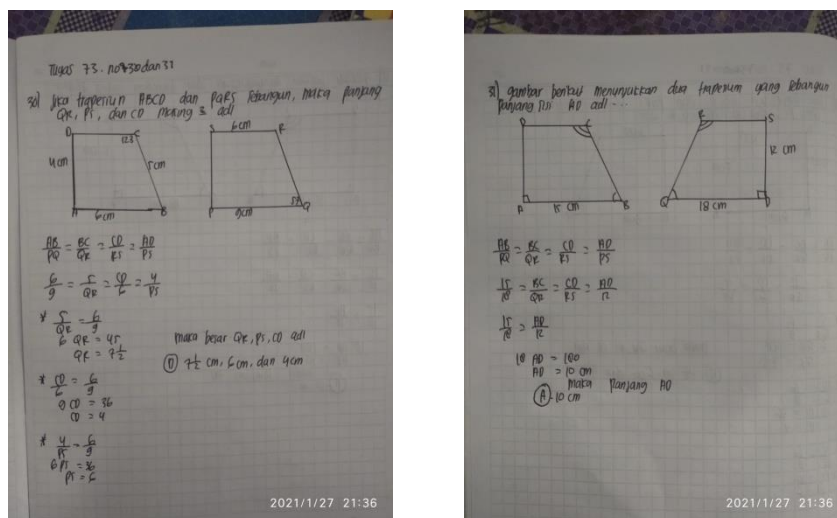 Tugas 73. no 30 dan 31
30) Jika trapesium ABCD dan PQRS sebangun, maka panjang
QR, PS, dan CD masing² adl
D C
123
4cm 5cm
A 6cm B
6cm
S R
P 9cm Q
AB/PQ = BC/QR = CD/RS = AD/PS
6/9 = 5/QR = CD/6 = 4/PS
* 5/QR = 6/9
6 QR = 45
QR = 7 1/2
* CD/6 = 6/9
9 CD = 36
CD = 4
* 4/PS = 6/9
6 PS = 36
PS = 6
maka besar QR, PS, CD adl
D 7 1/2 cm, 6cm, dan 4cm
2021/1/27 21:36
31) gambar berikut menunjukkan dua trapesium yang sebangun
panjang sisi AD adl ...
D C
A 15 cm B
R S
12 cm
Q 18 cm P
AB/PQ = BC/QR = CD/RS = AD/PS
15/18 = BC/QR = CD/RS = AD/12
15/18 = AD/12
18 AD = 180
AD = 10 cm
maka panjang AD
A. 10 cm
2021/1/27 21:36